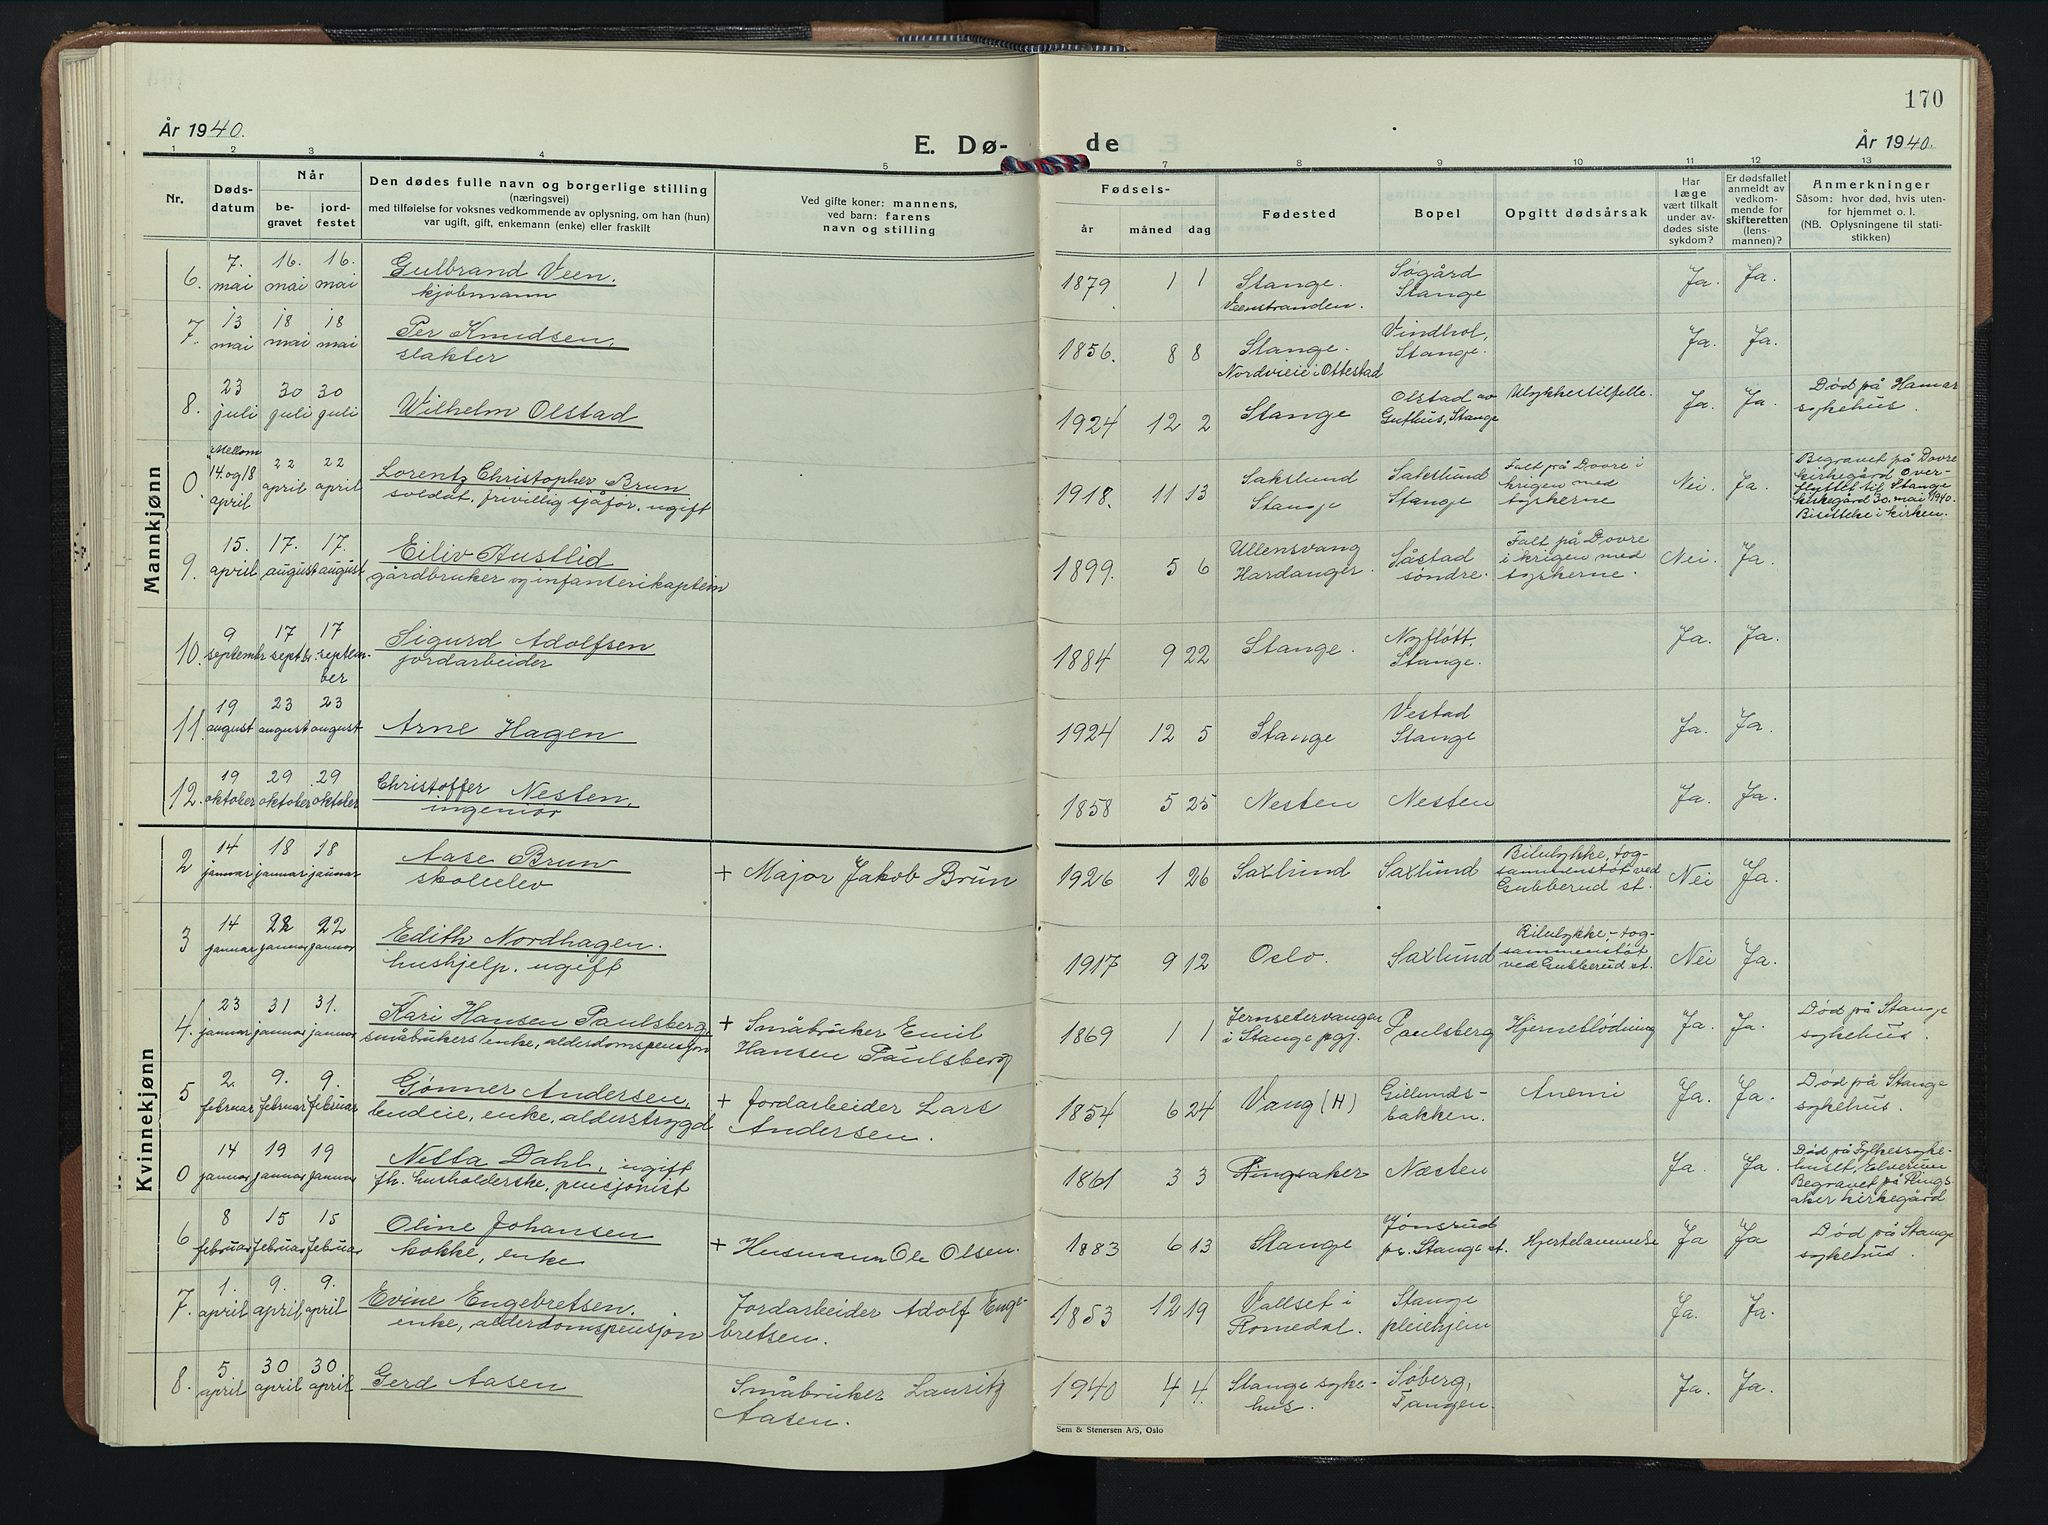 170
År 1940.
E. Dø-
de
År 1940.
1 2 3 4 5 7 8 9 10 11 12 13
Nr.
Døds-
datum
Når
be-
gravet
jord-
festet
Den dødes fulle navn og borgerlige stilling
(næringsvei)
med tilføielse for voksnes vedkommende av oplysning, om han (hun)
var ugift, gift, enkemann (enke) eller fraskilt
Ved gifte koner: mannens,
ved barn: farens
navn og stilling
Fødsels-
år måned dag
Fødested
Bopel
Opgitt dødsårsak
Har
læge
vært tilkalt
under av-
dødes siste
sykdom?
Er dødsfallet
anmeldt av
vedkom-
mende for
skifteretten
(lens-
mannen)?
Anmerkninger
Såsom: hvor død, hvis uten-
for hjemmet o. l.
(NB. Oplysningene til stati-
stikken)
Mannkjønn
6. 7. mai 16. mai 16. mai Gulbrand Veen.
kjøbmann
1879 1 1 Stange.
Veenstranden.
Søgård
Stange
Ja. Ja.
7. 13 mai 18 mai 18 mai Per Knudsen,
slakter
1856. 8 8 Stange.
Nordveie i Ottestad
Vindhol,
Stange.
Ja. Ja.
8. 23 juli 30 juli 30 juli Wilhelm Olstad
1924 12 2 Stange
Olstad av
Guthus, Stange
Ulykkestilfelle.
Ja. Ja.
Død på Hamar
sykehus.
0. Mellom
14. og 18
april
22 april 22 april Lorentz Christopher Brun
soldat, frivillig sjåfør. ugift
1918. 11 13 Sakslund
Stange
Sakslund
Stange
Falt på Dovre i
krigen med
tyskerne
Nei. Ja.
Begravet på Dovre
kirkegård. Over-
flyttet til Stange
kirkegård 30. mai 1940.
Bisettelse i kirken.
9. 15. april 17. august 17. august Eiliv Austlid
gårdbruker og infanterikaptein
1899. 5 6 Ullensvang
Hardanger.
Såstad
søndre.
Falt på Dovre
i krigen med
tyskerne.
Nei. Ja.
10. 9 september 17 septbr. 17 septem-
ber
Sigurd Adolfsen
jordarbeider
1884 9 22 Stange.
Nyfløtt.
Stange.
Ja. Ja.
11. 19 august 23 august 23 august Arne Hagen
1924 12 5 Stange
Vestad
Stange
Ja. Ja.
12. 19 oktober 29 oktober 29 oktober Christoffer Nesten,
ingeniør
1858 5 25 Nesten Nesten Ja. Ja.
Kvinnekjønn
2 14 januar 18 januar 18 januar Aase Brun
skoleelev
+ Major Jakob Brun
1926 1 26 Saxlund Saxlund
Bilulykke, tog-
sammenstøt ved
Gubberud st.
Nei Ja.
3 14 januar 22 januar 22 januar Edith Nordhagen.
hushjelp. ugift
1917 9 12 Oslo. Saxlund
Bilulykke,- tog-
sammenstøt
ved Gubberud st.
Nei Ja.
4. 23 januar 31 januar 31. januar Kari Hansen Paulsberg,
småbrukers enke, alderdomspensjon
+ Småbruker Emil
Hansen Paulsberg
1869 1 1 Jernsetervangen
i Stange pgj.
Paulsberg Hjerneblødning Ja. Ja.
Død på Stange
sykehus.
5 2. februar 9. februar 9. februar Gønner Andersen,
bendeie, enke, alderstrygd
+ Jordarbeider Lars
Andersen.
1854 6 24 Vang (H)
Gillunds-
bakken.
Anemi Ja. Ja.
Død på Stange
sykehus.
0 14 januar 19 januar 19 januar Netta Dahl, ugift
fh. husholderske, pensjonist
1861 3 3 Ringsaker Næsten Ja. Ja.
Død på Fylkessyke-
huset, Elverum
Begravet på Rings-
aker kirkegård
6 8 februar 15 februar 15 februar Oline Johansen
kokke, enke
+ Husmann Ole Olsen.
1883 6 13 Stange
Jønsrud
pr. Stange st.
Hjertelammelse Ja Ja
Død på Stange
sykehus.
7. 1. april 9. april 9. april Evine Engebretsen.
enke, alderdomspensjon
Jordarbeider Adolf Enge-
bretsen.
1853 12 19 Vallset i
Romedal.
Stange
pleiehjem
Ja. Ja.
8. 5 april 30 april 30 april Gerd Aasen
Småbruker Lauritz
Aasen.
1940 4 4. Stange syke-
hus.
Søberg,
Tangen.
Ja. Ja.
Sem & Stenersen A/S, Oslo